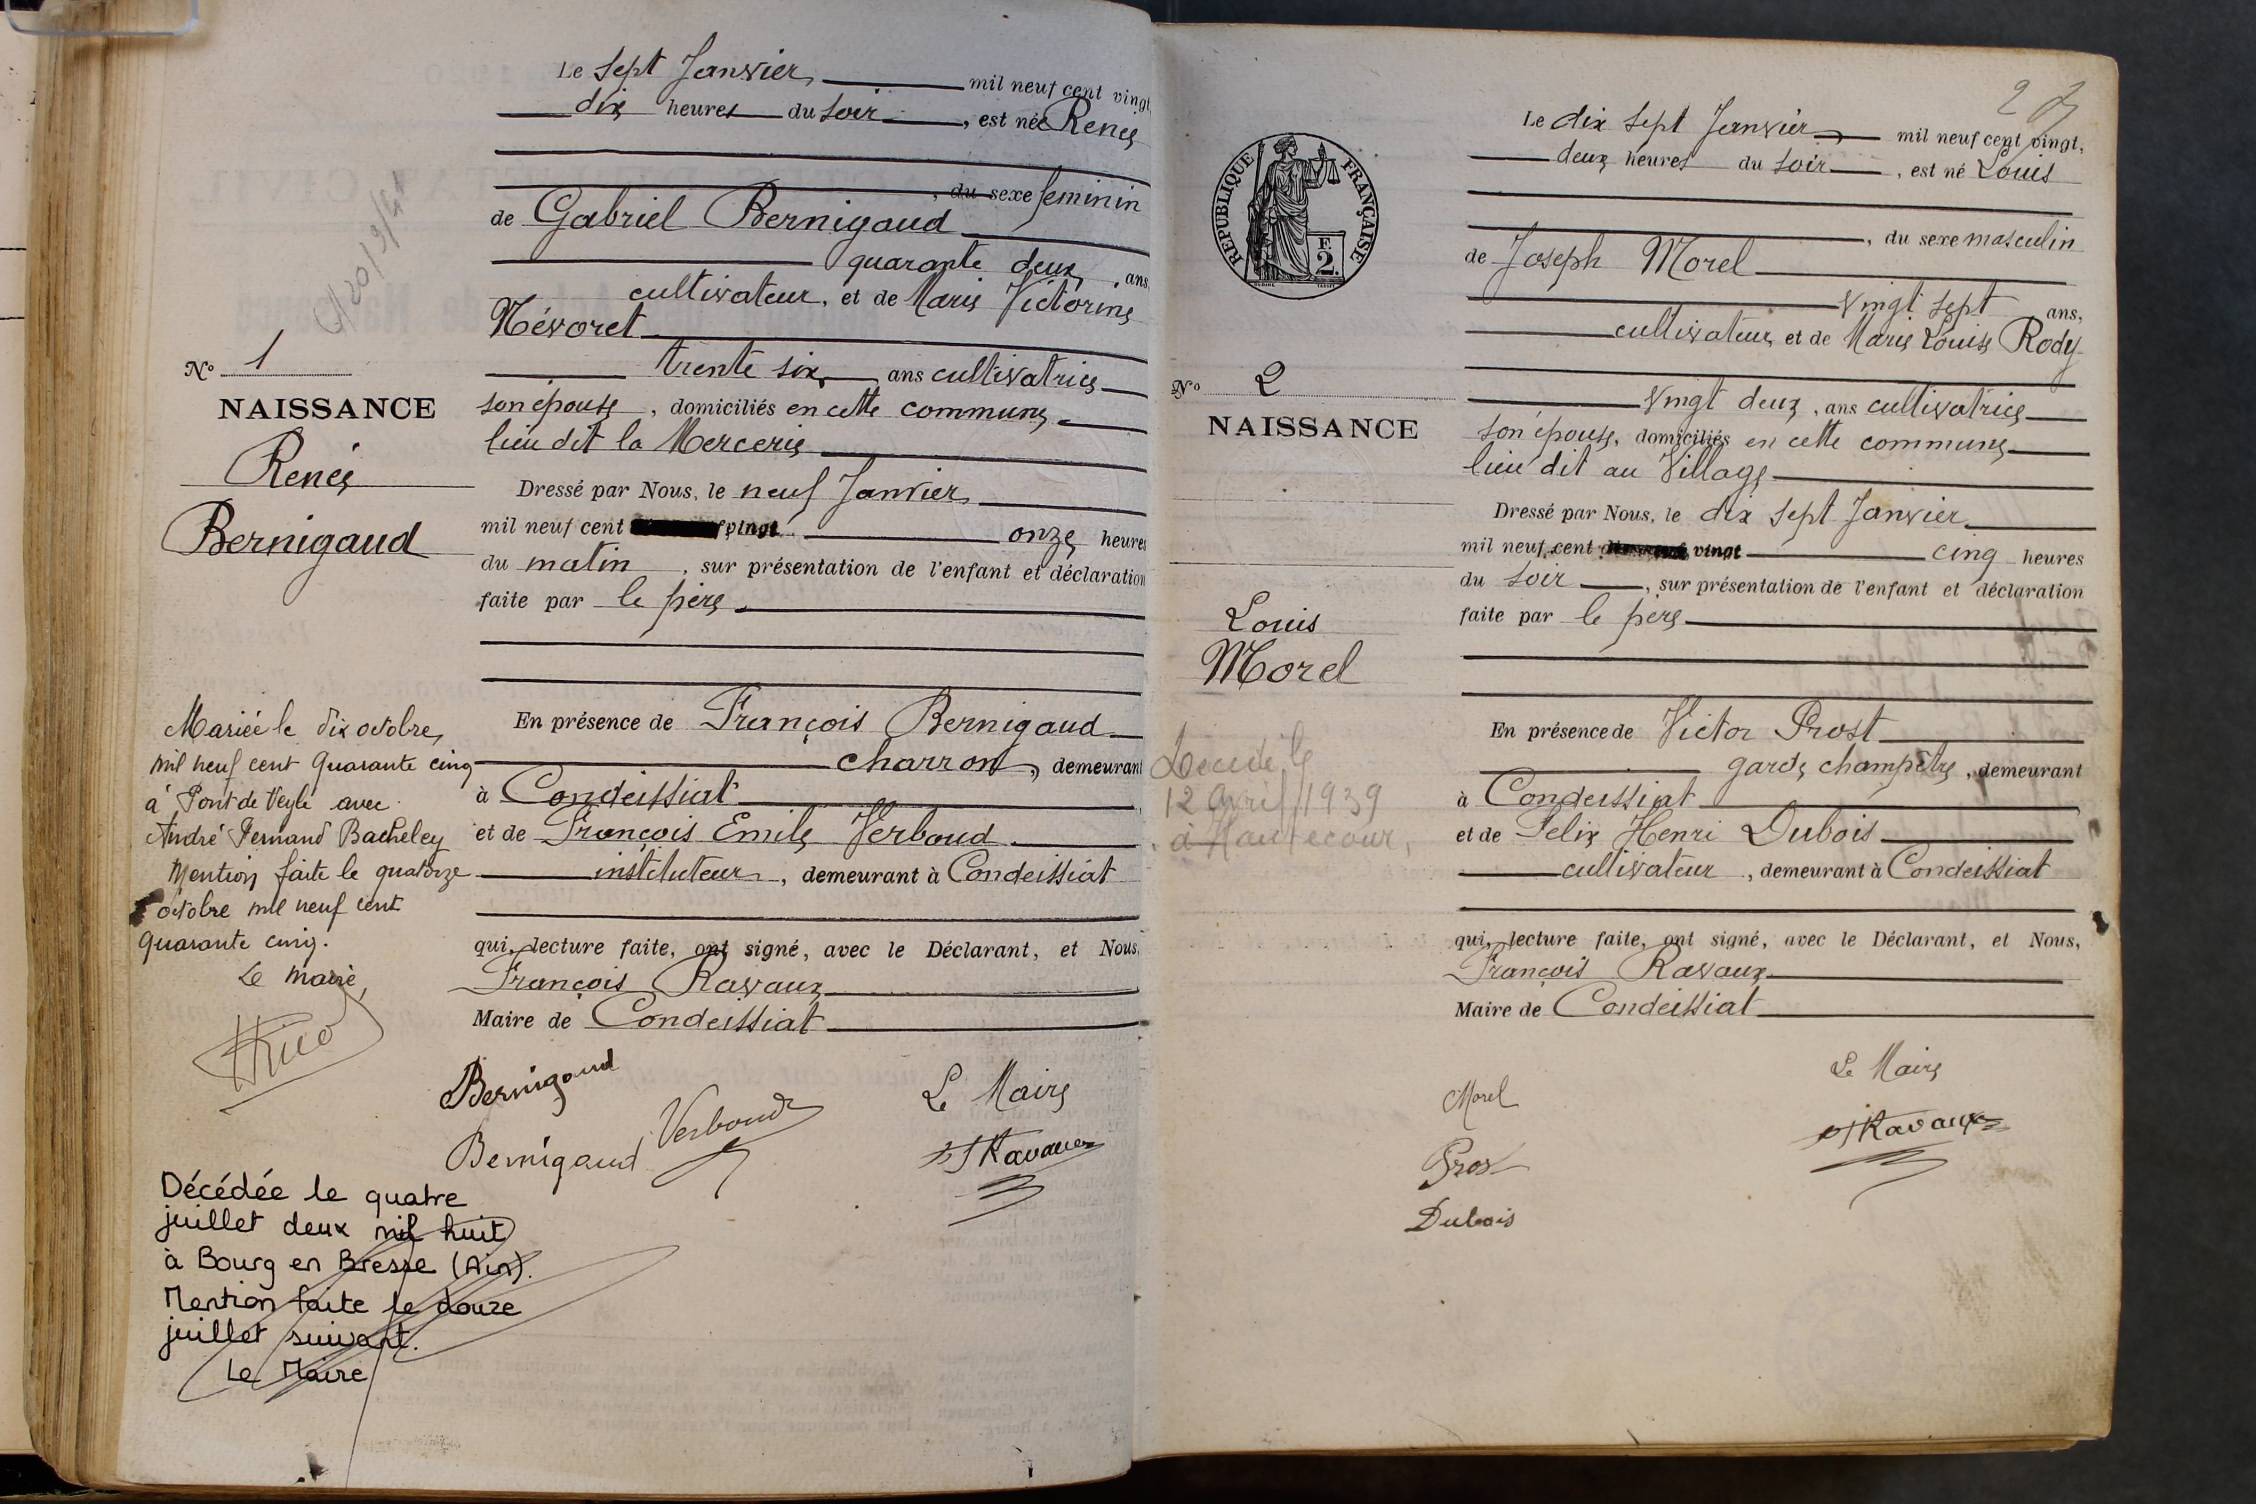 Le sept Janvier mil neuf cent vingt,
dix heures du soir, est née Renée
, du sexe feminin
de Gabriel Bernigaud
quarante deux, ans,
cultivateur, et de Marie Victorine
Névoret
trente six, ans cultivatrice
son épouse, domiciliés en cette commune,
lieu dit la Mercerie
Dressé par Nous, le neuf Janvier
mil neuf cent vingt onze heures
du matin, sur présentation de l'enfant et déclaration
faite par le père.
En présence de François Bernigaud
charron, demeurant
à Condeissiat
et de François Emile Verboud
instituteur, demeurant à Condeissiat
qui, lecture faite, ont signé, avec le Déclarant, et Nous,
François Ravaux
Maire de Condeissiat
Bernigaud
Bernigaud
Verboud
Le Maire
Ravaux
No 1
NAISSANCE
Renée
Bernigaud
Mariée le dix octobre
mil neuf cent quarante cinq
à Pont de Veyle avec
André Fernand Bacheley
Mention faite le quatorze
octobre mil neuf cent
quarante cinq.
Le maire,
Décédée le quatre
juillet deux mil huit
à Bourg en Bresse (Ain).
Mention faite le douze
juillet suivant.
Le Maire
2
Le dix sept Janvier, mil neuf cent vingt,
deux heures du soir, est né Louis
, du sexe masculin
de Joseph Morel
vingt sept ans,
cultivateur, et de Marie Louise Rody
vingt deux, ans cultivatrice
son épouse, domiciliés en cette commune
lieu dit au Village
Dressé par Nous, le dix sept Janvier
mil neuf cent vingt cinq heures
du soir, sur présentation de l'enfant et déclaration
faite par le père
En présence de Victor Prost
garde champêtre, demeurant
à Condeissiat
et de Felix Henri Dubois
cultivateur, demeurant à Condeissiat
qui, lecture faite, ont signé, avec le Déclarant, et Nous,
François Ravaux
Maire de Condeissiat
Morel
Prost
Dubois
Le Maire
Ravaux
REPUBLIQUE FRANÇAISE
F.
2.
No 2
NAISSANCE
Louis
Morel
Décédé le
12 avril 1939
à Hautecour,